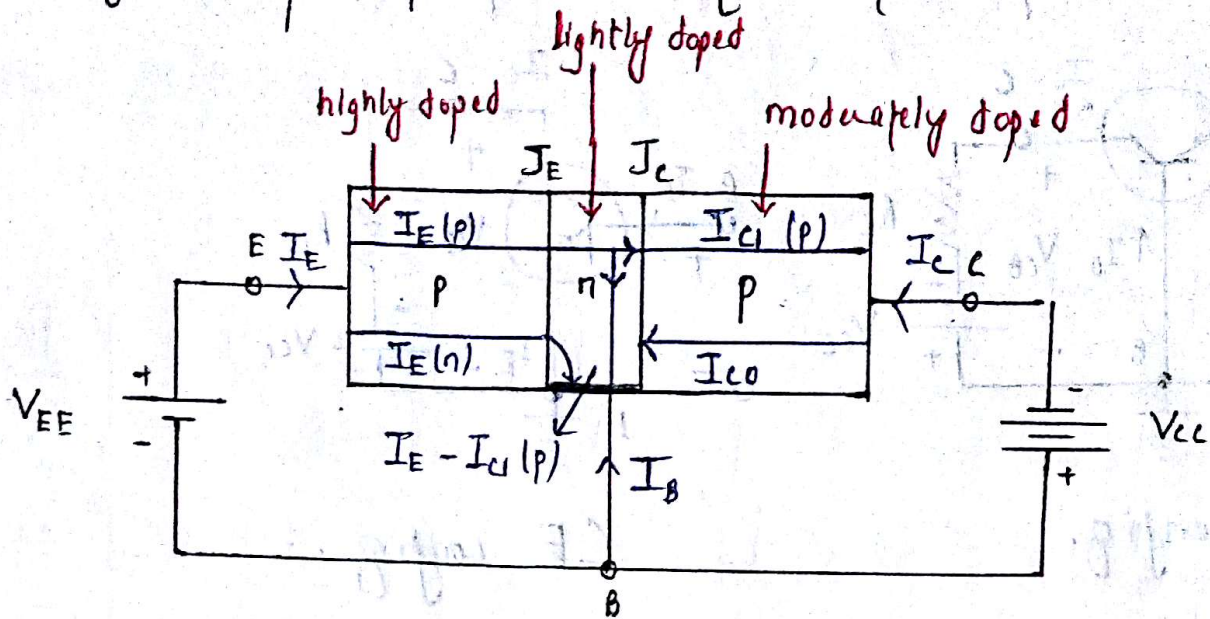 lightly doped
highly doped
moderately doped
J_E J_C
I_E(p) I_C1 (p)
E I_E
I_C C
p n p
I_E(n) I_CO
+
V_EE
-
-
V_CC
+
I_E - I_C1 (p)
I_B
B